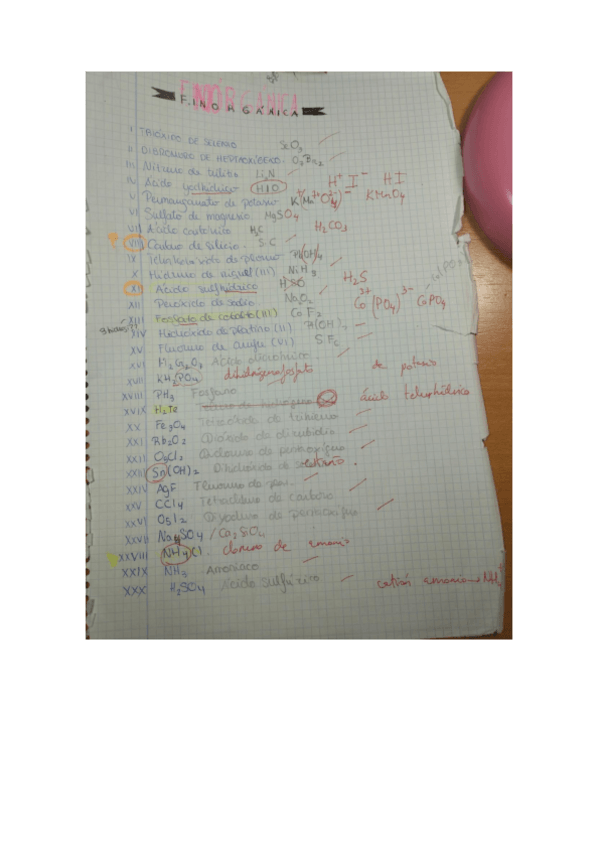 F. INORGÁNICA
I TRIÓXIDO DE SELENIO SeO3
II DIBROMURO DE HEPTAOXÍGENO O7Br2
III Nitruro de litio Li3N
IV Ácido yodhídrico HIO H+ I- HI
V Permanganato de potasio KMnO4
VI Sulfato de magnesio MgSO4
VII Ácido carbónico H2C H2CO3
VIII Carburo de silicio SiC
IX Tetrahidróxido de plomo Pb(OH)4
X Hidruro de níquel (III) NiH3
XI Ácido sulfhídrico H2S
XII Peróxido de sodio Na2O2
XIII Fosfato de cobalto (III) CoF2 Co3+ (PO4)3- CoPO4
XIV Hidróxido de platino (II)
XV Fluoruro de azufre (VI) SF6
XVI Ácido dicrómico
XVII KH2PO4 dihidrógenofosfato de potasio
XVIII PH3 Fosfano
XVIX H2Te ácido telurhídrico
XX Fe3O4
XXI Rb2O2 Dióxido de dirubidio
XXII O5Cl2 Dicloruro de pentaoxígeno
XXIII Sn(OH)2 Dihidróxido de estaño.
XXIV AgF Fluoruro de plata.
XXV CCl4 Tetracloruro de carbono
XXVI O5I2 Diyoduro de pentaoxígeno
XXVII
XXVIII NH4Cl cloruro de amonio
XXIX NH3 Amoniaco
XXX H2SO4 Ácido sulfúrico catión amonio → NH4